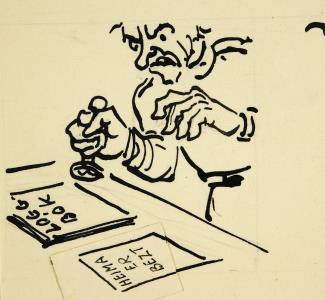 LOGG
BOK
HEIMA
ER
BEZT